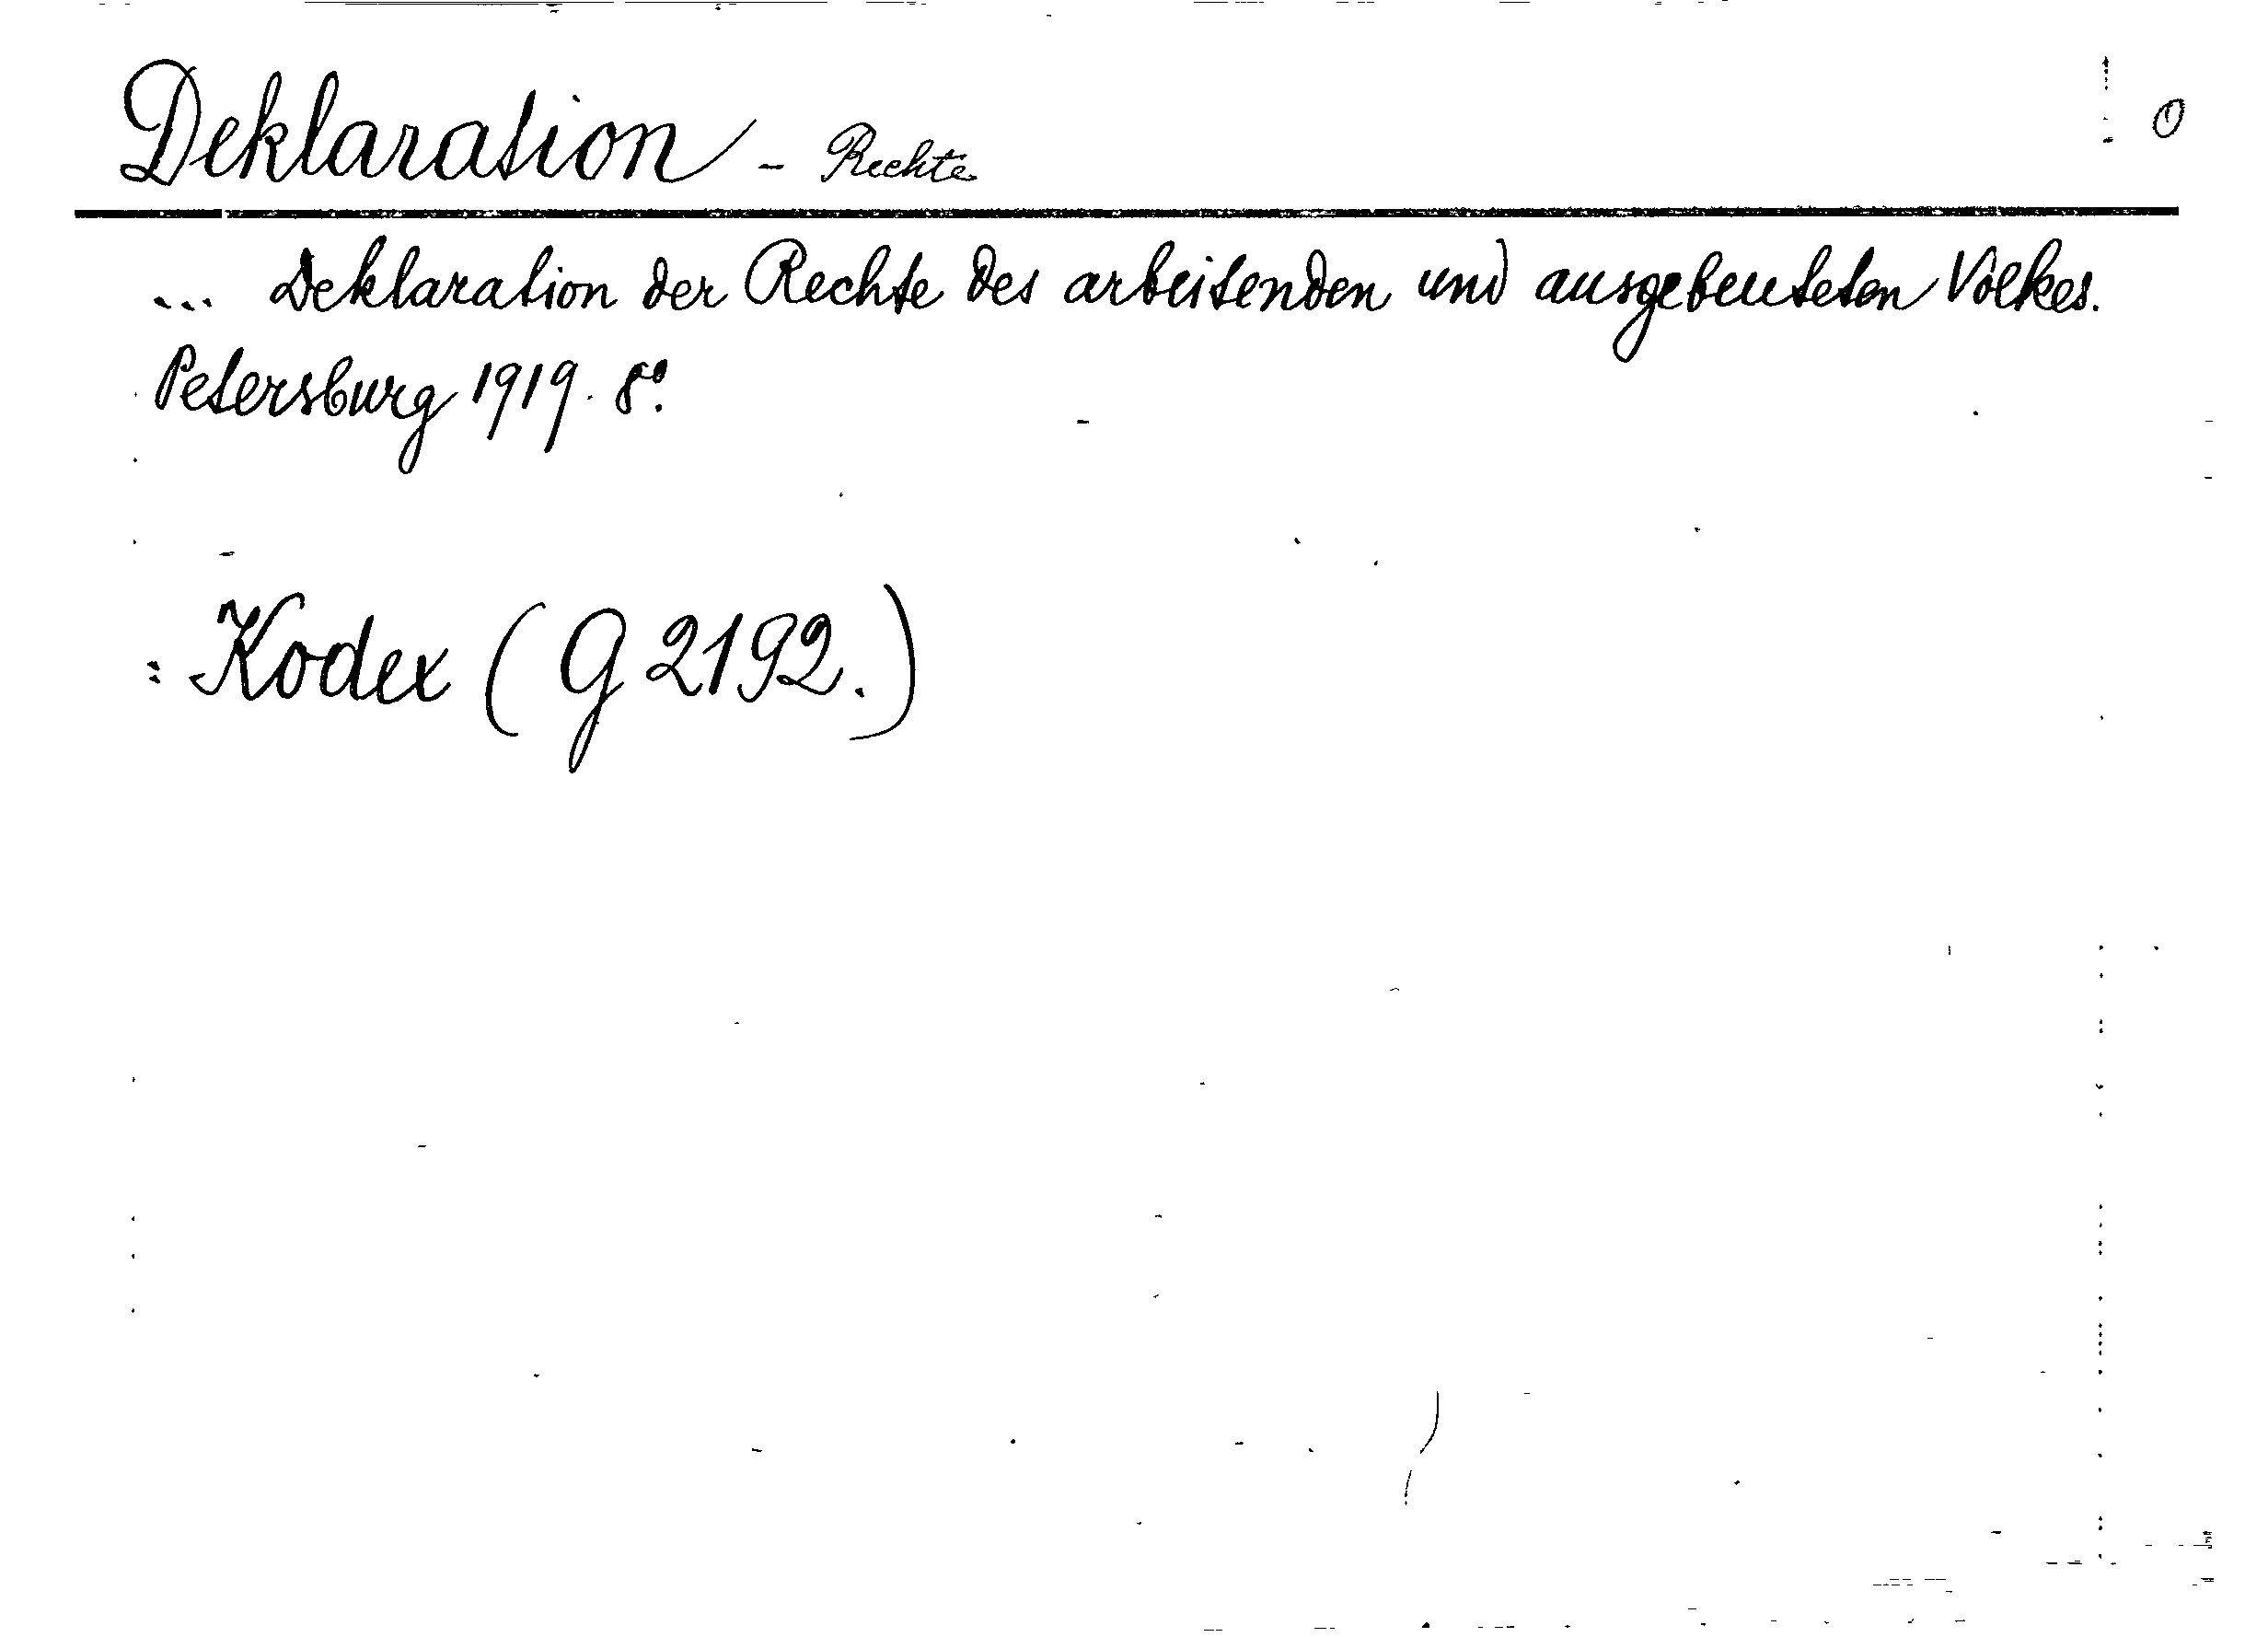 Deklaration - Rechte 0
... Deklaration der Rechte des arbeitenden und ausgebeuteten Volkes.
Petersburg 1919. 8°.
: Kodex (G 2192.)